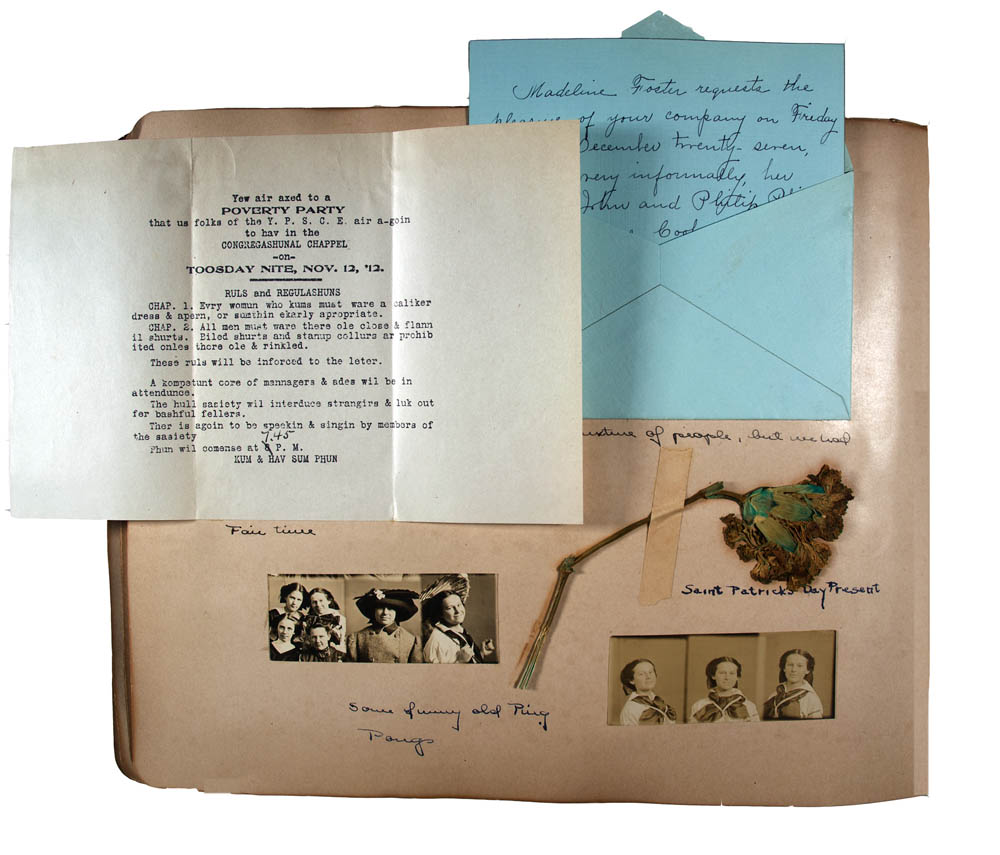 Madeline Foster requests the
pleasure of your company on Friday
December twenty-seven,
very informally, her
John and Philip
Cool
Yew air axed to a
POVERTY PARTY
that us folks of the Y. P. S. C. E. air a-goin
to hav in the
CONGREGASHUNAL CHAPPEL
-on-
TOOSDAY NITE, NOV. 12, '12.
RULS and REGULASHUNS
CHAP. 1. Evry womun who kums must ware a caliker
dress & apern, or sumthin ekarly apropriate.
CHAP. 2. All men must ware there ole close & flann
il shurts. Biled shurts and stanup collurs ar prohib
ited onles thore ole & rinkled.
These ruls will be inforced to the leter.
A kompetunt core of mannagers & ades wil be in
attendunce.
The hull sasiety wil interduce strangirs & luk out
fer bashful fellers.
Ther is agoin to be speekin & singin by members of
the sasiety
Phun wil comense at 7.45 P. M.
KUM & HAV SUM PHUN
mixture of people, but we had
Fair time
Saint Patrick's Day Present
Some funny old Ping
Pongs